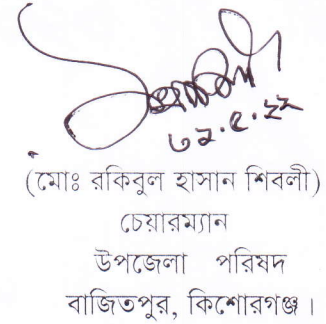 (মোঃ রকিবুল হাসান শিবলী)
চেয়ারম্যান
উপজেলা পরিষদ
বাজিতপুর, কিশোরগঞ্জ।